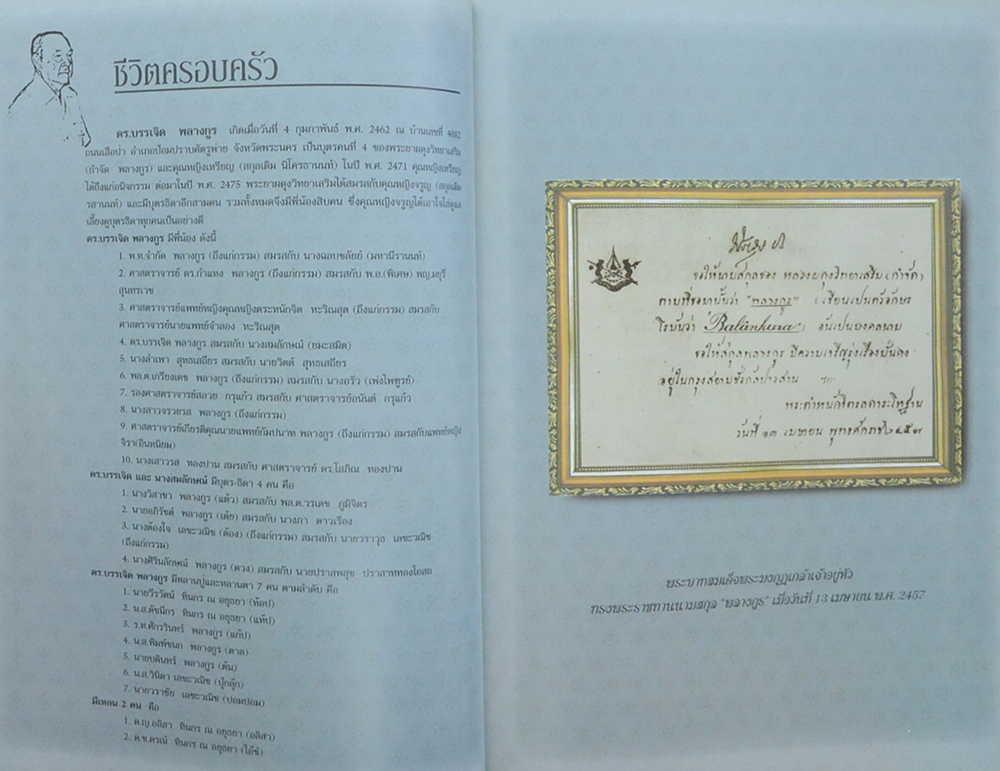 ชีวิตครอบครัว
ดร.บรรเจิด พลางกูร เกิดเมื่อวันที่ 4 กุมภาพันธ์ พ.ศ. 2462 ณ บ้านเลขที่
ถนนเสือป่า อำเภอป้อมปราบศัตรูพ่าย จังหวัดพระนคร เป็นบุตรคนที่ 4 ของพระยาผดุงวิทยาเสริม
(กำจัด พลางกูร) และคุณหญิงเหรียญ (สกุลเดิม นิโครธานนท์) ในปี พ.ศ. 2471 คุณหญิงเหรียญ
ได้ถึงแก่อนิจกรรม ต่อมาในปี พ.ศ. 2475 พระยาผดุงวิทยาเสริมได้สมรสกับคุณหญิงจรูญ (สกุลเดิม
รสานนท์) และมีบุตรธิดาอีกสามคน รวมทั้งหมดจึงมีพี่น้องสิบคน ซึ่งคุณหญิงจรูญได้เอาใจใส่ดูแล
เลี้ยงดูบุตรธิดาทุกคนเป็นอย่างดี
ดร.บรรเจิด พลางกูร มีพี่น้อง ดังนี้
1. พ.ท.จำกัด พลางกูร (ถึงแก่กรรม) สมรสกับ นางฉลบชลัยย์ (มหานีรานนท์)
2. ศาสตราจารย์ ดร.กำแหง พลางกูร (ถึงแก่กรรม) สมรสกับ พ.อ.(พิเศษ) พญ.มยุรี
สุนทรเวช
3. ศาสตราจารย์แพทย์หญิงคุณหญิงตระหนักจิต หะริณสุต (ถึงแก่กรรม) สมรสกับ
ศาสตราจารย์นายแพทย์จำลอง หะริณสุต
4. ดร.บรรเจิด พลางกูร สมรสกับ นางสมลักษณ์ (ยมะสมิต)
5. นางลำเพา สุทธเสถียร สมรสกับ นายวิตต์ สุทธเสถียร
6. พล.ต.เกรียงเดช พลางกูร (ถึงแก่กรรม) สมรสกับ นางอรัว (เพ่งไพฑูรย์)
7. รองศาสตราจารย์สลวย กรุแก้ว สมรสกับ ศาสตราจารย์อนันต์ กรุแก้ว
8. นางสาวจรวยรส พลางกูร (ถึงแก่กรรม)
9. ศาสตราจารย์เกียรติคุณนายแพทย์กัมปนาท พลางกูร (ถึงแก่กรรม) สมรสกับแพทย์หญิง
จิรา(อินทนิยม)
10. นางเสาวรส ทองปาน สมรสกับ ศาสตราจารย์ ดร.โสภิณ ทองปาน
ดร.บรรเจิด และ นางสมลักษณ์ มีบุตร-ธิดา 4 คน คือ
1. นางวิสาขา พลางกูร (แต้ว) สมรสกับ พล.ต.วรเดช ภูมิจิตร
2. นายอภิรัขต์ พลางกูร (เต้ย) สมรสกับ นางภา ดาวเรือง
3. นางต้องใจ เลขะวณิช (ต้อง) (ถึงแก่กรรม) สมรสกับ นายวราวุธ เลขะวณิช
(ถึงแก่กรรม)
4. นางศิรินลักษณ์ พลางกูร (ดวง) สมรสกับ นายปราสพสุข ปราสาททองโอสถ
ดร.บรรเจิด พลางกูร มีหลานปู่และหลานตา 7 คน ตามลำดับ คือ
1. นายวีรวัฒน์ ทินกร ณ อยุธยา (ท๊อป)
2. น.ส.ดัชนีกร ทินกร ณ อยุธยา (แท๊ป)
3. ร.ท.ศักรินทร์ พลางกูร (แก๊ป)
4. น.ส.พิมพ์ชนก พลางกูร (ตาล)
5. นายบดินทร์ พลางกูร (ต้น)
6. น.ส.วินิดา เลขะวณิช (ปุ๊กลุ๊ก)
7. นายวราชัย เลขะวณิช (ปอมปอม)
มีเหลน 2 คน คือ
1. ด.ญ.อลิสา ทินกร ณ อยุธยา (อลิสา)
2. ด.ช.ดรณ์ ทินกร ณ อยุธยา (ไอ๋ซ์)
ขอให้นามสกุลของ หลวงผดุงวิทยาเสริม (กำจัด)
ตามที่ขอมานั้นว่า "พลางกูร" (เขียนเป็นตัวอักษร
โรมันว่า "Balânkura") อันเป็นมงคลนาม
ขอให้สกุลพลางกูร มีความเจริญรุ่งเรืองมั่นคง
อยู่ในกรุงสยามชั่วกัลปาวสาน
พระตำหนักจิตรลดารโหฐาน
วันที่ ๑๓ เมษายน พุทธศักราช ๒๔๕๗
พระบาทสมเด็จพระมงกุฎเกล้าเจ้าอยู่หัว
ทรงพระราชทานนามสกุล "พลางกูร" เมื่อวันที่ 13 เมษายน พ.ศ. 2457